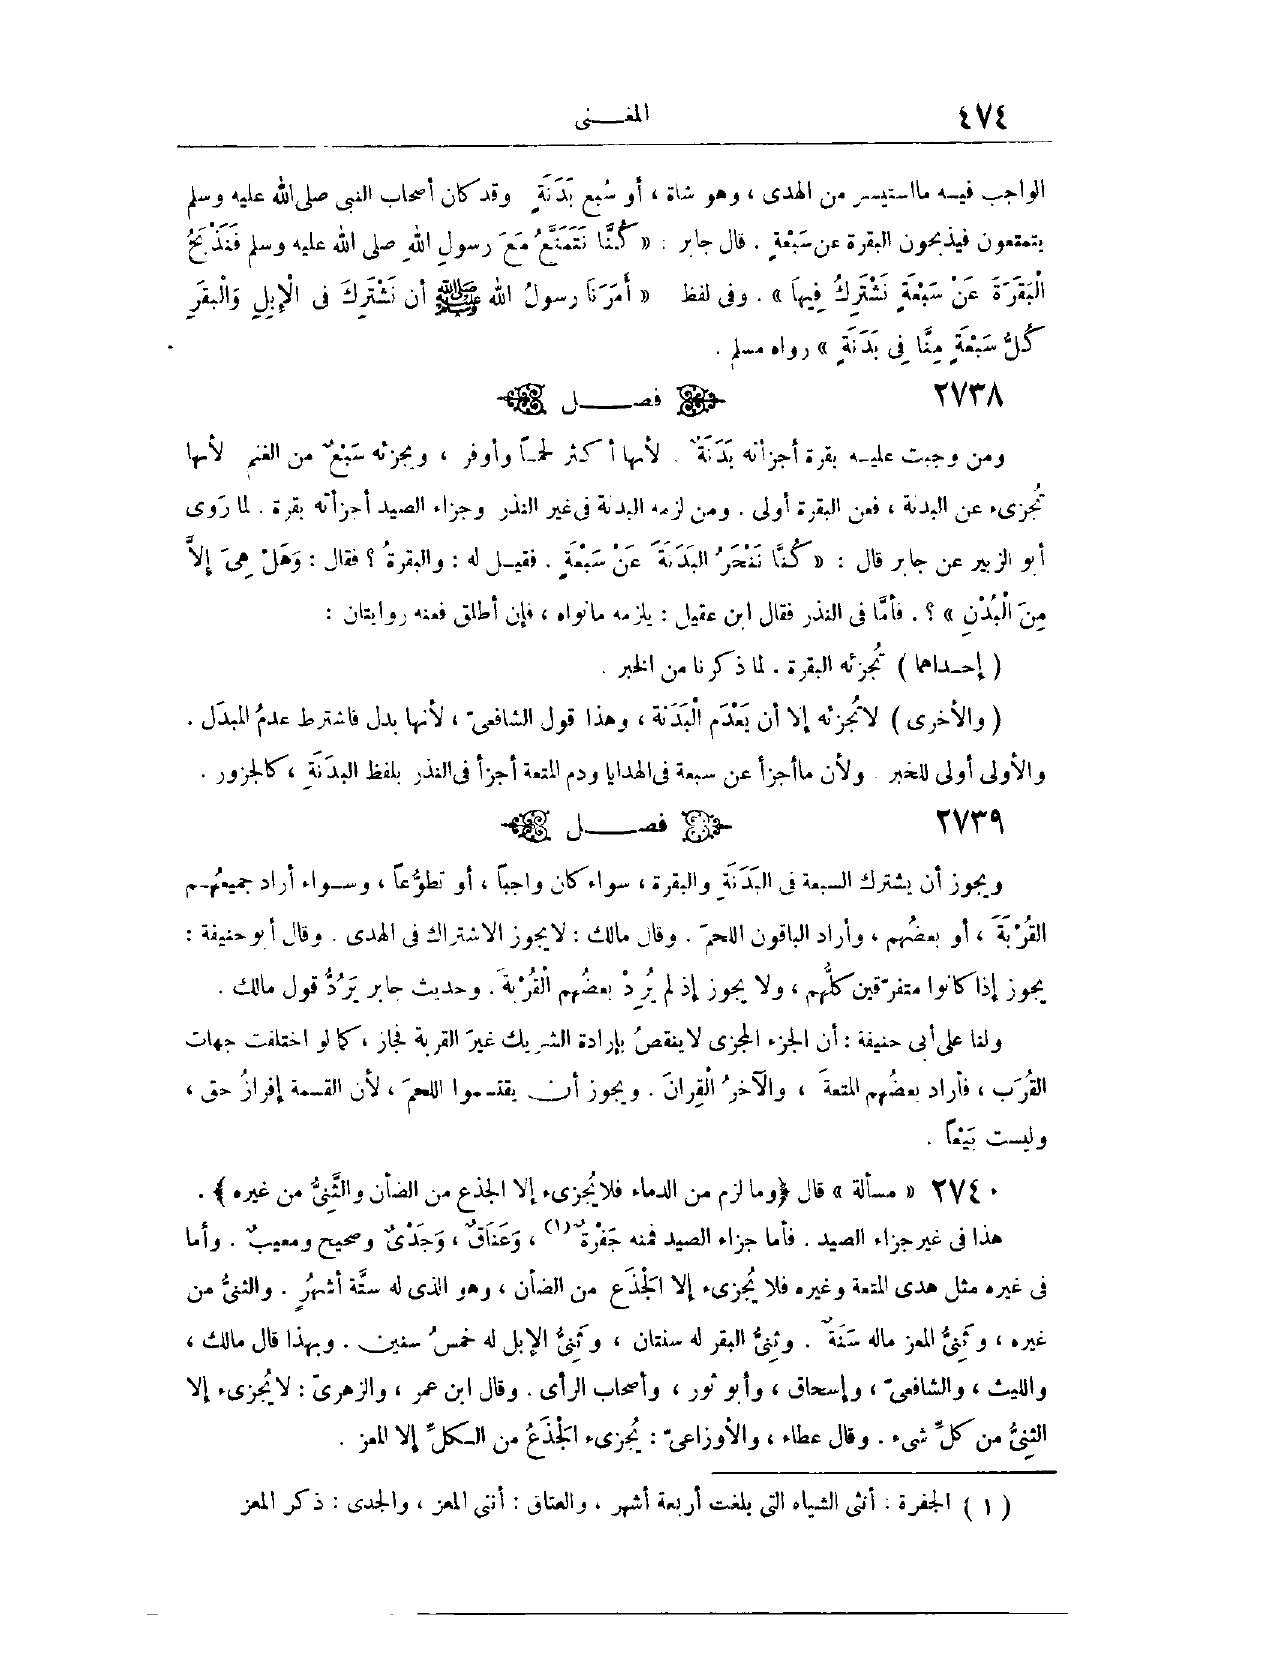 ٤٧٤
المغـــنى
الواجب فيه ما استيسر من الهدى ، وهو شاة ، أو سُبع بَدَنَةٍ وقد كان أصحاب النبى صلى الله عليه وسلم
يتمتعون فيذبحون البقرة عن سَبْعَةٍ . قال جابر : « كُنَّا نَتَمَتَّعُ مَعَ رسولِ اللهِ صلى الله عليه وسلم فَنَذْبَحُ
الْبَقَرَةَ عَنْ سَبْعَةٍ نَشْتَرِكُ فِيهَا » . وفى لفظ « أَمَرَنَا رسولُ الله ﷺ أن نَشْتَرِكَ فى الْإِبِلِ وَالْبقَرِ
كُلُّ سَبْعَةٍ مِنَّا فِى بَدَنَةٍ » رواه مسلم .
٢٧٣٨ فصــــل
ومن وجبت عليه بقرة أجزأته بَدَنَةٌ . لأنها أكثر لحماً وأوفر ، ويجزئه سَبْعٌ من الغنم لأنها
تُجزىء عن البدنة ، فعن البقرة أولى . ومن لزمه البدنة فى غير النذر وجزاء الصيد أجزأته بقرة . لما رَوى
أبو الزبير عن جابر قال : « كُنَّا نَنْحَرُ البَدَنَةَ عَنْ سَبْعَةٍ . فقيل له : والبقرةُ ؟ فقال : وَهَلْ هِىَ إِلاَّ
مِنَ الْبُدْنِ » ؟ . فأمَّا فى النذر فقال ابن عقيل : يلزمه مانواه ، فإن أطلق فعنه روايتان :
( إحـداهما ) تُجزئه البقرة . لما ذكرنا من الخبر .
( والأخرى ) لاتُجزئه إلا أن يَعْدَم الْبَدَنة ، وهذا قول الشافعىّ ، لأنها بدل فاشترط عدمُ المبدَل .
والأولى أولى للخبر . ولأن ماأجزأ عن سبعة فى الهدايا ودم المتعة أجزأ فى النذر بلفظ البدَنَةِ ، كالجزور .
٢٧٣٩ فصــــل
ويجوز أن يشترك السبعة فى البَدَنَةِ والبقرة ، سواء كان واجباً ، أو تطوُّعاً ، وسـواء أراد جميعُهـم
القُرْبَةَ ، أو بعضُهم ، وأراد الباقون اللحمَ . وقال مالك : لايجوز الاشتراك فى الهدى . وقال أبو حنيفة :
يجوز إذا كانوا متفرّقين كلُّهم ، ولا يجوز إذ لم يُرِدْ بعضُهم الْقُرْبةَ . وحديث جابر يَرُدُّ قول مالك .
ولنا على أبى حنيفة : أن الجزء المجزى لاينقصُ بإرادة الشريك غيرَ القربة فجاز ، كما لو اختلفت جهات
القُرَب ، فأراد بعضُهم المتعةَ ، والآخرُ الْقِرانَ . ويجوز أن يقتسموا اللحمَ ، لأن القسمة إفرازُ حق ،
وليست بَيْعاً .
٢٧٤٠ « مسألة » قال ﴿وما لزم من الدماء فلايُجزىء إلا الجذع من الضأن والثَّنِىُّ من غيره ﴾ .
هذا فى غير جزاء الصيد . فأما جزاء الصيد فمنه جَفْرةٌ(١) ، وَعَنَاقٌ ، وَجَدْىٌ وصحيح ومعيبٌ . وأما
فى غيره مثل هدى المتعة وغيره فلا يُجزىء إلا الْجَذَع من الضأن ، وهو الذى له ستَّة أشهُرٍ . والثنىُّ من
غيره ، وثَنِىُّ المعز ماله سَنَةٌ . وثنِىُّ البقر له سنتان ، وثَنِىُّ الإبل له خمسُ سنين . وبهذا قال مالك ،
والليث ، والشافعىّ ، وإسحاق ، وأبو ثور ، وأصحاب الرأى . وقال ابن عمر ، والزهرىّ : لايُجزىء إلا
الثنِىُّ من كلِّ شىء . وقال عطاء ، والأوزاعىّ : يُجزىء الْجَذَعُ من الـكلِّ إلا المعز .
( ١ ) الجفرة : أنثى الشياه التى بلغت أربعة أشهر ، والعتاق : أنثى المعز ، والجدى : ذكر المعز